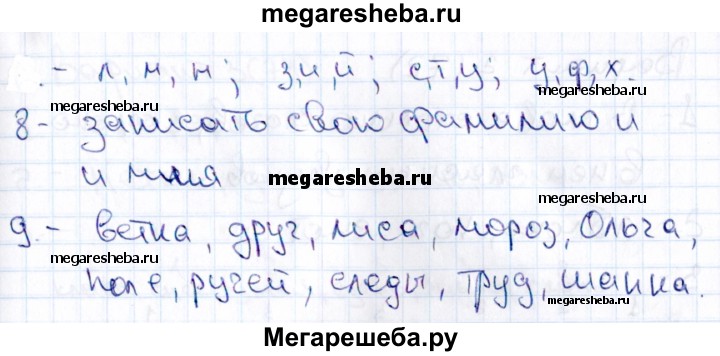 megaresheba.ru
.- л, м, н; з,и,й; с,т,у; у,ф,х.
megaresheba.ru
megaresheba.ru
8- записать свою фамилию и
и имя
megaresheba.ru
megaresheba.ru
9.- ветка, друг, лиса, мороз, Ольга,
поле, ручей, следы, труд, шапка.
megaresheba.ru
megaresheba.ru
Мегарешеба.ру